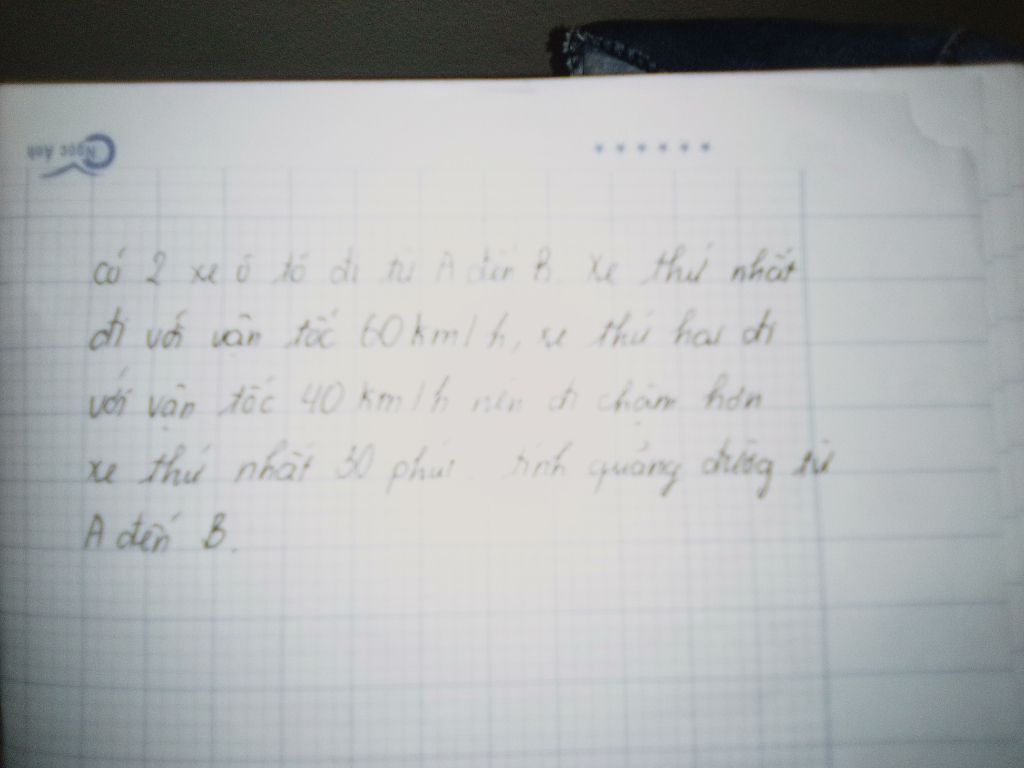 Ngọc Ánh
có 2 xe ô tô đi từ A đến B. Xe thứ nhất
đi với vận tốc 60 km/h, xe thứ hai đi
với vận tốc 40 km/h nên đi chậm hơn
xe thứ nhất 30 phút. tính quảng đường từ
A đến B.